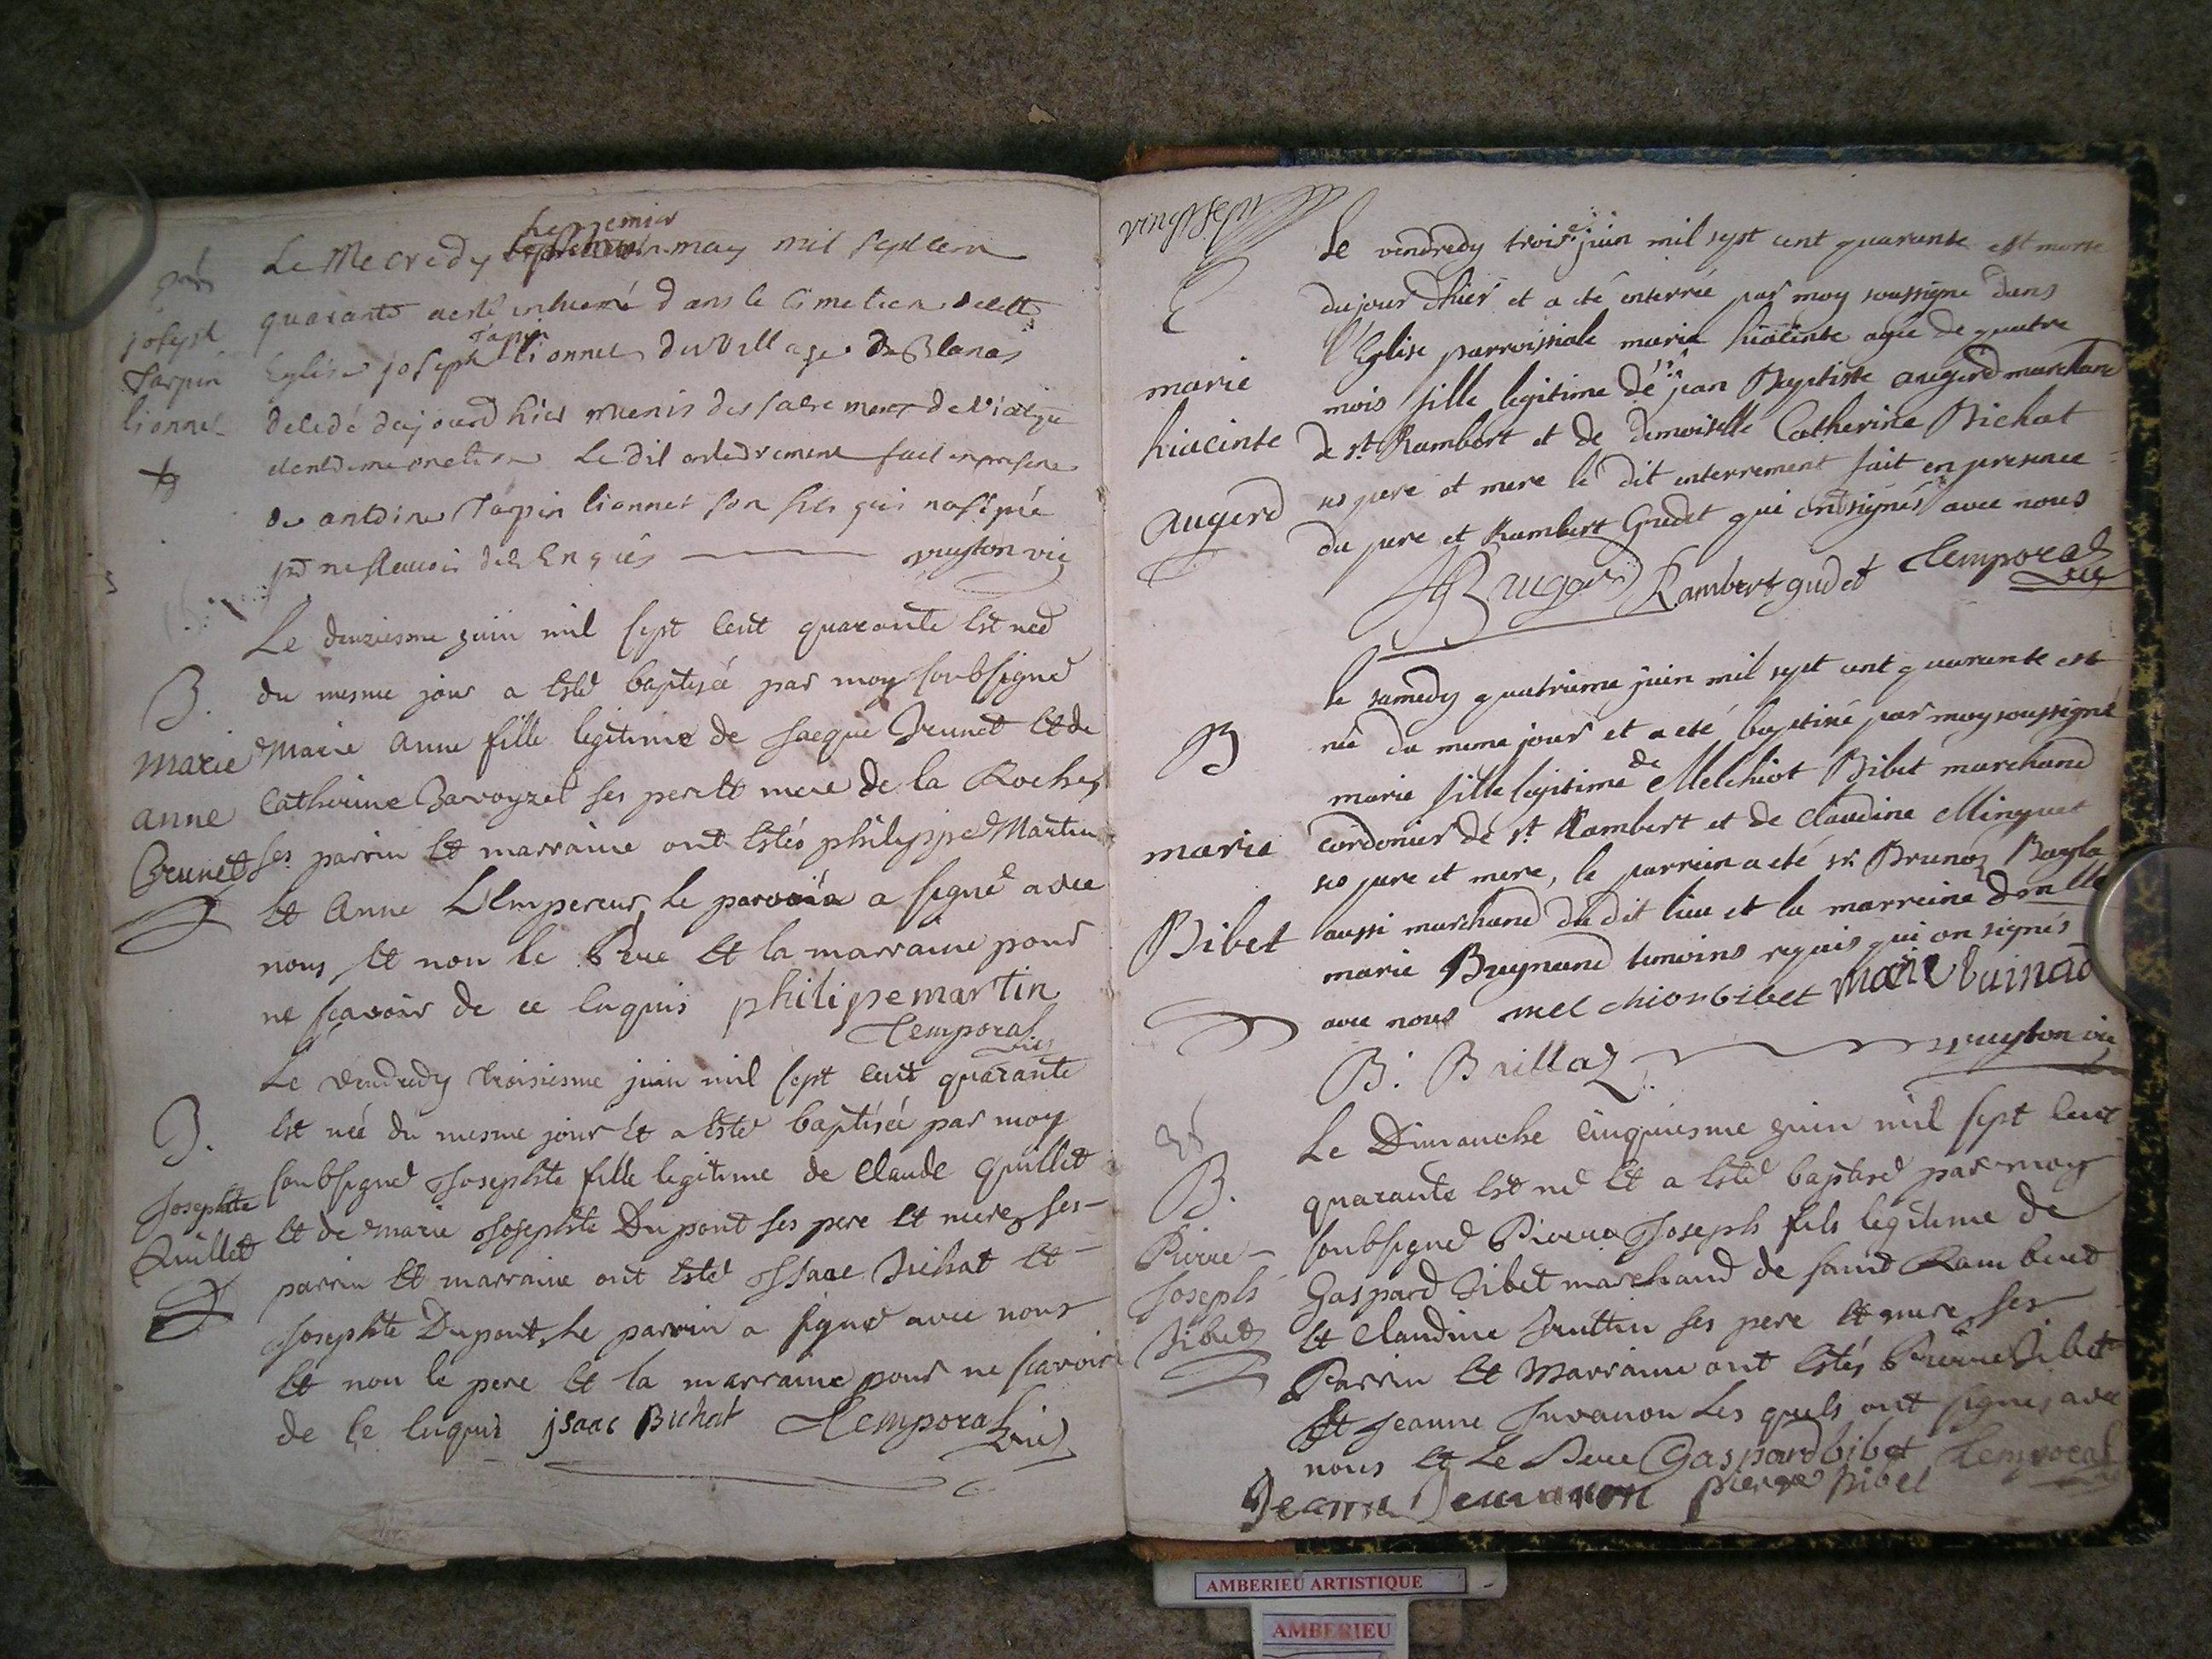 Le Mecredy le premier may mil sept cent
quarante a esté inhumé dans le cimetiere de cette
joseph
Tarpin
lionnet
Eglise joseph Tarpin lionnet du village de Blanas
decedé du jourd hier munis des sacrements de viatique
et extreme onction le dit enterrement fait en presence
de antoine Tarpin lionnet son fils qui na signé
pr ne scavoir de ce enquis vuyton vic
B.
marie
anne
Brunet
Le deuxiesme juin mil sept cent quarante est née
du mesme jour a esté baptisée par moy soubsigné
Marie anne fille legitime de Jacque Brunet et de
Catherine Savoyzet ses pere et mere de la Roche,
ses parrin et marraine ont estés philippe Martin
et anne L'Empereur, le parrain a signé avec
nous, et non le Pere et la marraine pour
ne scavoir de ce enquis philipe martin
Temporal vic
B.
Josephte
Quillet
Le vendredy troisiesme juin mil sept cent quarante
est née du mesme jour et a esté baptisée par moy
soubsigné Josephte fille legitime de Claude Quillet
et de marie Josephte Dupont ses pere et mere, ses
parrin et marraine ont esté Isaac Bichat et
Josephte Dupont, le parrin a signé avec nous
et non le pere et la marraine pour ne scavoir
de ce enquis jsaac Bichat Temporal vic
vingt sept
E
marie
hiacinte
augerd
Le vendredy trois juin mil sept cent quarante est morte
du jour d'hier et a été enterrée par moy soussigné dans
l'Eglise parroissiale marie hiacinte agée de quatre
mois fille legitime de sr jean Baptiste augerd marchand
de st Rambert et de demoiselle Catherine Bichat
ses pere et mere le dit enterrement fait en presence
du pere et Rambert Gudet qui ont signés avec nous
Augerd Rambert gudet Temporal vic
B
marie
Bibet
le samedy quatrieme juin mil sept cent quarante est
née du meme jour et a eté baptisée par moy soussigné
marie fille legitime de Melchiot Bibet marchand
cordonier de st Rambert et de claudine Minguet
ses pere et mere, le parrein a eté sr. Bruno Bayla
aussi marchand du dit lieu et la marreine dmelle
marie Buynand temoins requis qui on signés
avec nous melchior bibet marie buinad
B. Baillaz vuyton vic
B.
Pierre
Joseph
Bibet
Le Dimanche cinquiesme juin mil sept cent
quarante est né et a esté baptisé par moy
soubsigné Pierre Joseph fils legitime de
Gaspard Bibet marchand de saint Rambert
et Claudine Jruttin ses pere et mere, ses
Parrin et Marraine ont estés Pierre Bibet
et jeanne Juvanon les quels ont signes avec
nous et Le Pere Gaspard bibet Temporal
Jeanne Jeuvanon pierre Bibet
AMBERIEU ARTISTIQUE
AMBERIEU